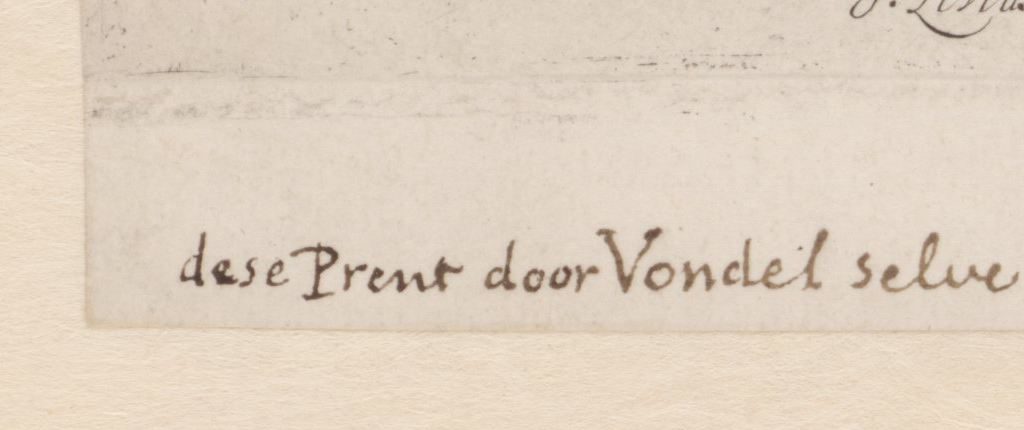 dese Prent door Vondel selve